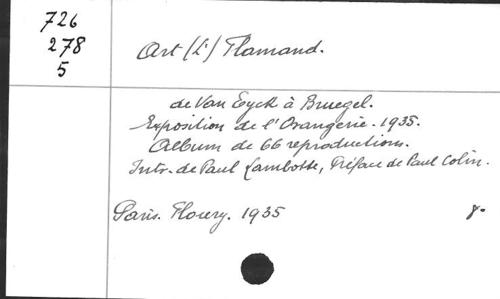 726
278
5
Art (L') Flamand.
de Van Eyck à Bruegel.
Exposition de l'Orangerie. 1935.
Album de 66 reproductions.
Intr. de Paul Lambotte, Préface de Paul Colin.
Paris. Floury. 1935
8.